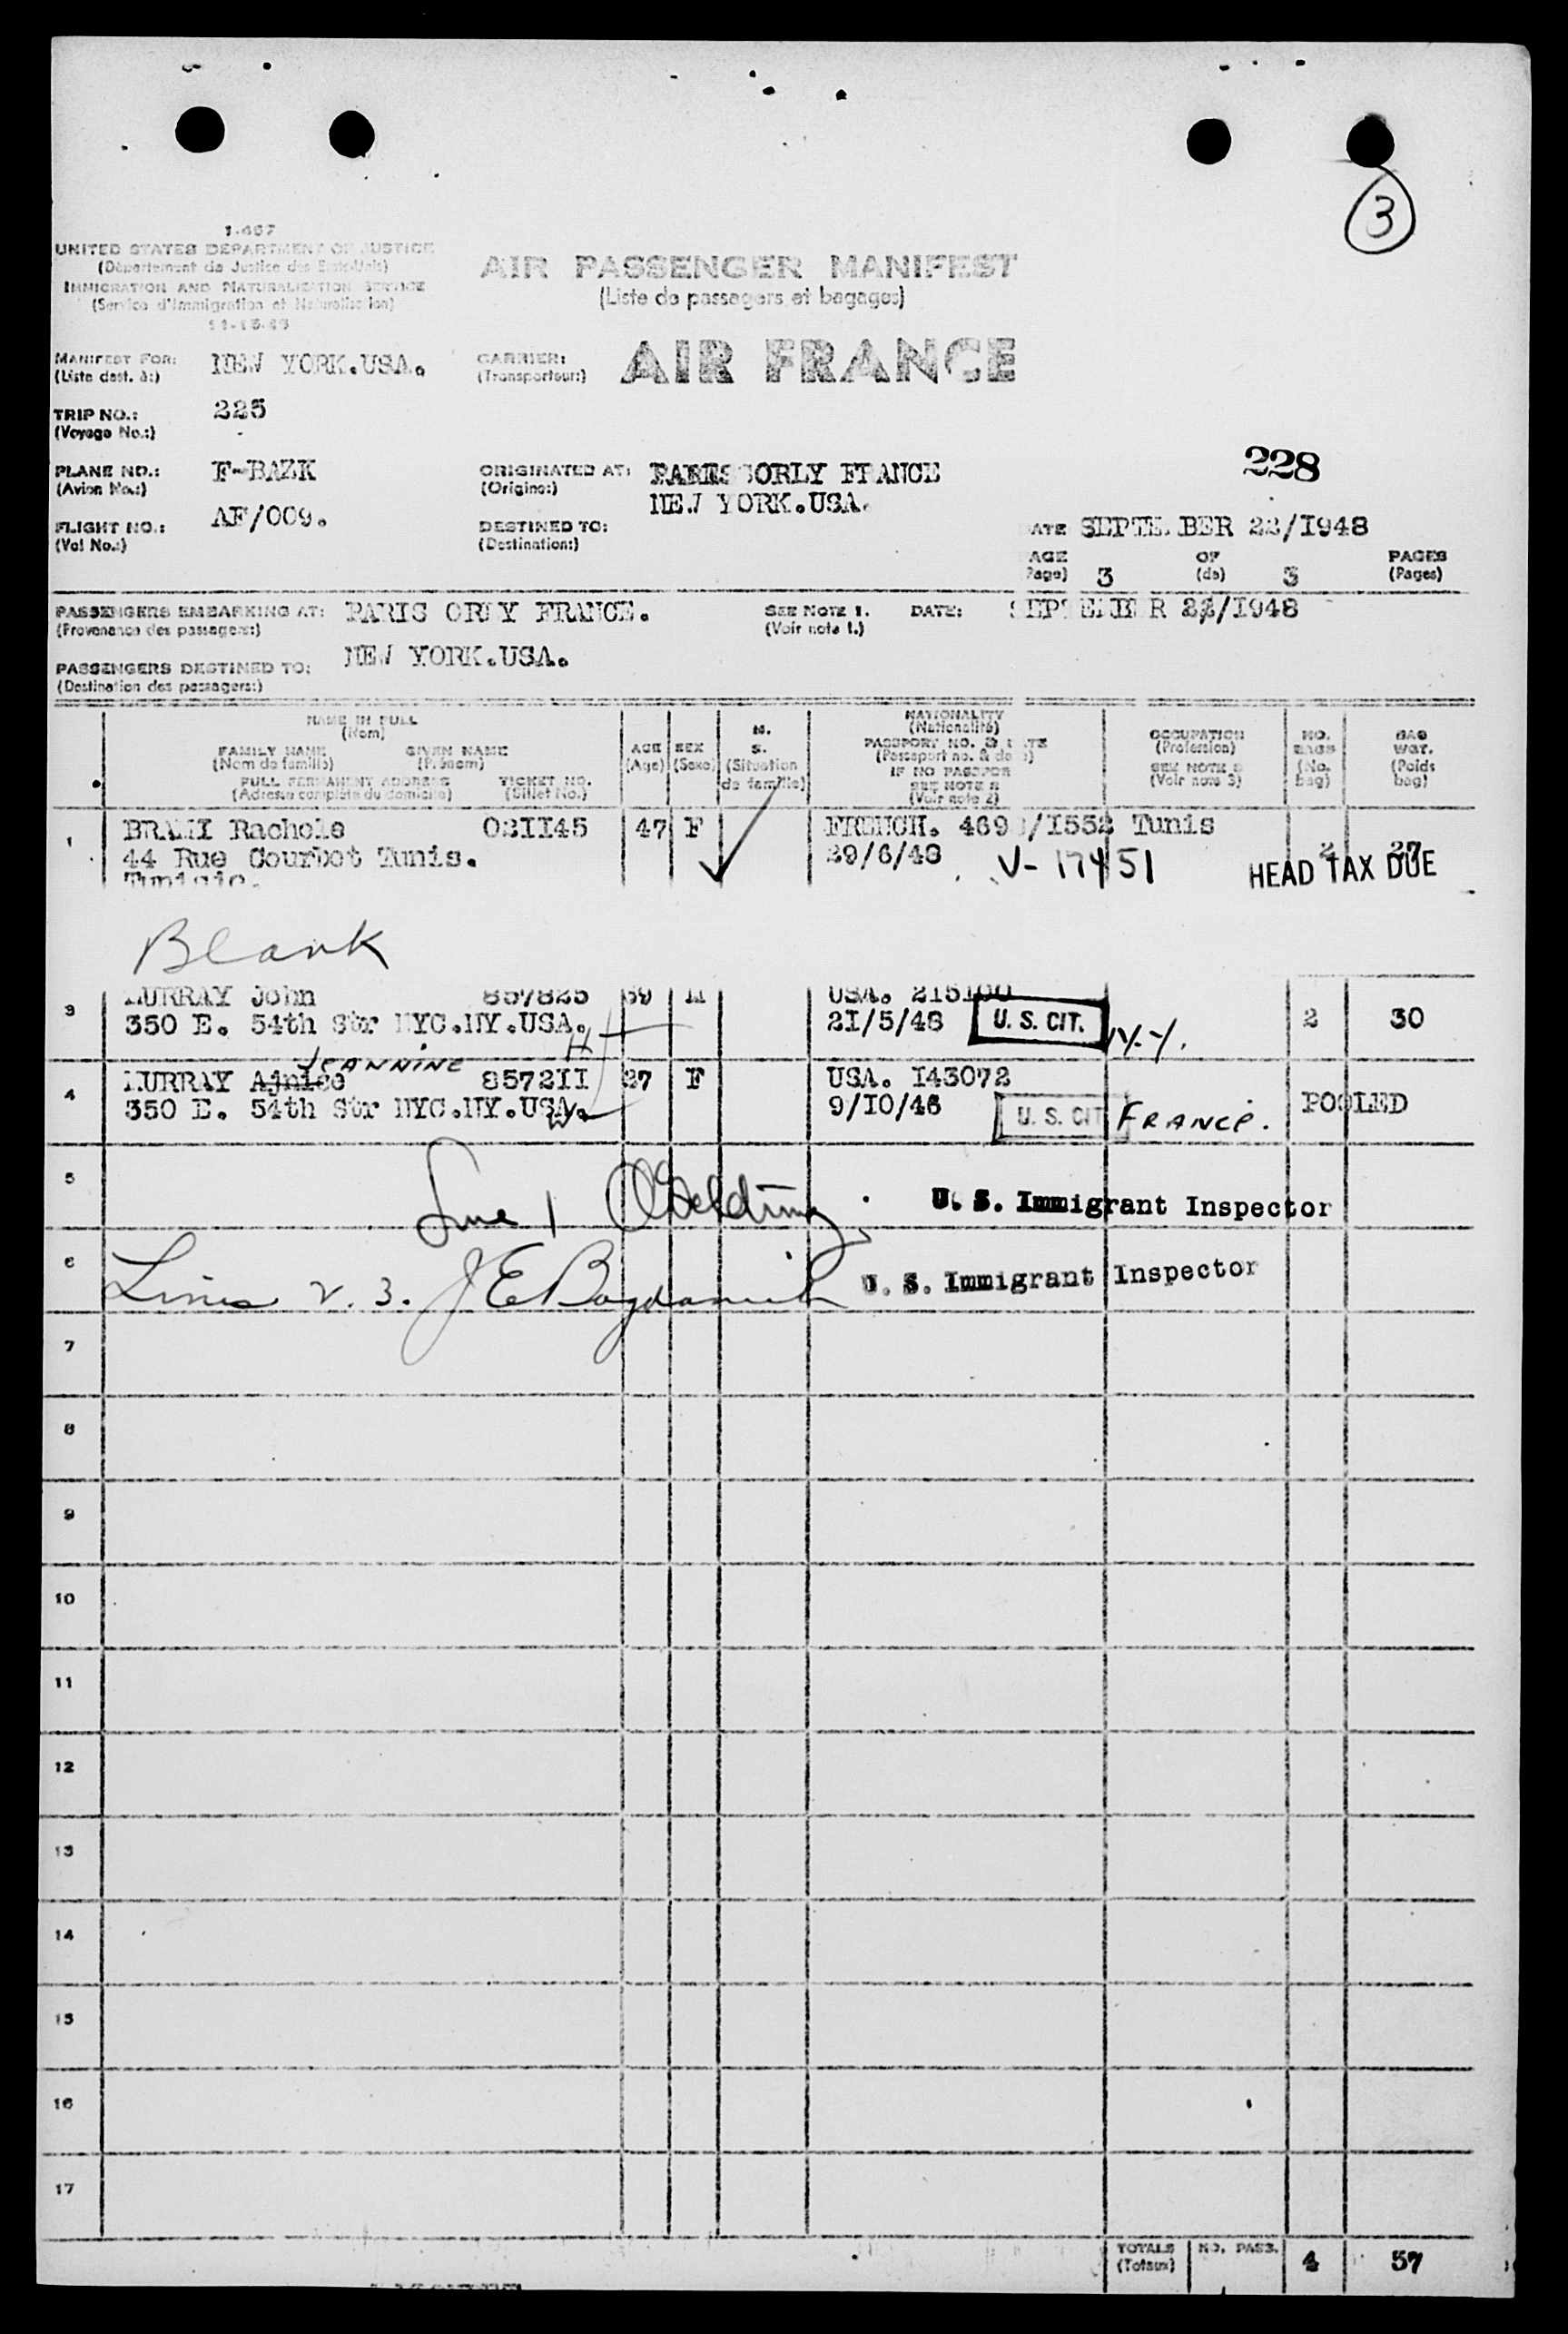 3
1-467
UNITED STATES DEPARTMENT OF JUSTICE
(Département de Justice des Etats-Unis)
IMMIGRATION AND NATURALIZATION SERVICE
(Service d'Immigration et Naturalisation)
AIR PASSENGER MANIFEST
(Liste de passagers et bagages)
MANIFEST FOR: NEW YORK.USA.
(Liste dest. à:)
CARRIER: AIR FRANCE
(Transporteur:)
TRIP NO.: 225
(Voyage No.:)
228
PLANE NO.: F-BAZK
(Avion No.:)
ORIGINATED AT: PARIS ORLY FRANCE
(Origine:)
NEW YORK.USA.
FLIGHT NO.: AF/009.
(Vol No.:)
DESTINED TO:
(Destination:)
ATE SEPTE. BER 22/I948
AGE 3 OF 3 PAGES
Page) (de) (Pages)
PASSENGERS EMBARKING AT: PARIS ORLY FRANCE.
(Provenance des passagers:)
SEE NOTE 1. DATE: SEPTEMBER 22/I948
(Voir note 1.)
PASSENGERS DESTINED TO: NEW YORK.USA.
(Destination des passagers:)
NAME IN FULL
(Nom)
FAMILY NAME GIVEN NAME
(Nom de famille) (Prénom)
FULL PERMANENT ADDRESS TICKET NO.
(Adresse complète du domicile) (Billet No.)
AGE
(Age)
SEX
(Sexe)
M.
S.
(Situation
de famille)
NATIONALITY
(Nationalité)
PASSPORT NO. & TE
(Passeport no. & da )
IF NO PASSPOR
SEE NOTE 2
(Voir note 2)
OCCUPATION
(Profession)
SEE NOTE 3
(Voir note 3)
NO.
BAGS
(No.
bag)
BAG
WGT.
(Poids
bag)
1 BRAMI Rachele 02II45 47 F FRENCH. 469 /I552 Tunis
44 Rue Courbot Tunis. 29/6/48 V-17451 2 27
Tunisie. HEAD TAX DUE
Blank
3 MURRAY John 857825 59 M USA. 215100
350 E. 54th Str NYC.NY.USA. 2I/5/48 U. S. CIT. N.Y. 2 30
H
JEANNINE
4 MURRAY Ajnice 8572II 27 F USA. I43072
350 E. 54th Str NYC.NY.USA. 9/IO/46 U. S. CIT FRANCE. POOLED
W
5 Line 1 U. S. Immigrant Inspector
6 Lines 2. 3. J E Bogdanich U. S. Immigrant Inspector
7
8
9
10
11
12
13
14
15
16
17
TOTALS NO. PASS. 4 57
(Totaux)